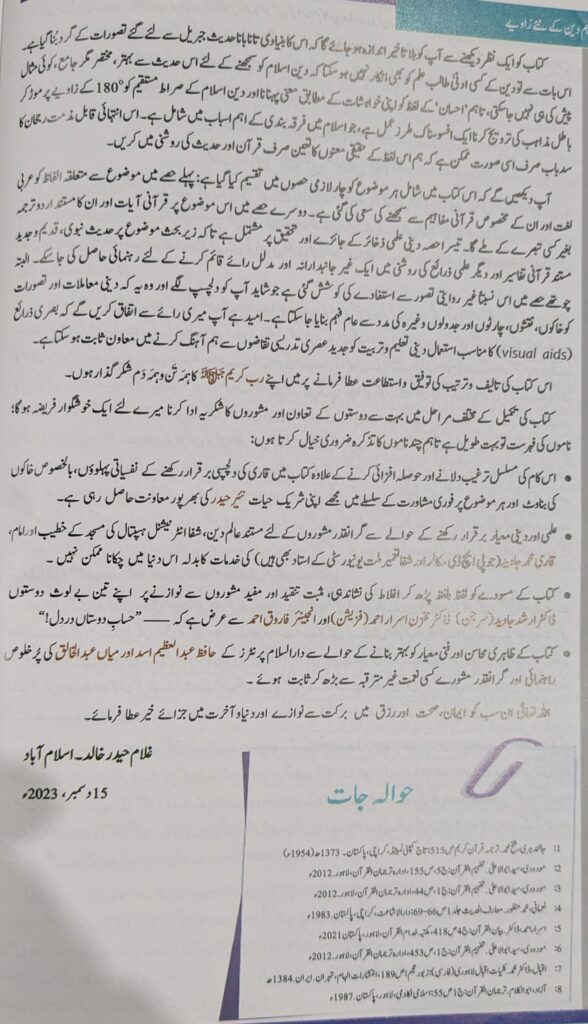 دین کے نئے زاویے
کتاب کو ایک نظر دیکھنے سے آپ کو بلا تاخیر اندازہ ہو جائے گا کہ اس کا بنیادی تانا بانا حدیث جبریل سے لئے گئے تصورات کے گرد بُنا گیا ہے۔
اس بات سے تو دین کے کسی ادنیٰ طالب علم کو بھی انکار نہیں ہو سکتا کہ دین اسلام کو سمجھنے کے لئے اس حدیث سے بہتر، مختصر مگر جامع، کوئی مثال
پیش کی ہی نہیں جا سکتی، تاہم 'احسان' کے لفظ کو اپنی خواہشات کے مطابق معنی پہنانا اور دین اسلام کے صراط مستقیم کو 180° کے زاویے پر موڑ کر
باطل مذاہب کی ترویج کرنا ایک افسوسناک طرز عمل ہے، جو اسلام میں فرقہ بندی کے اہم اسباب میں شامل ہے۔ اس انتہائی قابل مذمت رجحان کا
سدباب صرف اسی صورت ممکن ہے کہ ہم اس لفظ کے حقیقی معنوں کا تعین صرف قرآن اور حدیث کی روشنی میں کریں۔
آپ دیکھیں گے کہ اس کتاب میں شامل ہر موضوع کو چار لازمی حصوں میں تقسیم کیا گیا ہے: پہلے حصے میں موضوع سے متعلقہ الفاظ کو عربی
لغت اور ان کے مخصوص قرآنی مفاہیم سے سمجھنے کی سعی کی گئی ہے۔ دوسرے حصے میں اس موضوع پر قرآنی آیات اور ان کا مستند اردو ترجمہ
بغیر کسی تبصرے کے ملے گا۔ تیسرا حصہ دینی علمی ذخائر کے جائزے اور تحقیق پر مشتمل ہے تاکہ زیر بحث موضوع پر حدیث نبوی، قدیم و جدید
مستند قرآنی تفاسیر اور دیگر علمی ذرائع کی روشنی میں ایک غیر جانبدارانہ اور مدلل رائے قائم کرنے کے لئے رہنمائی حاصل کی جا سکے۔ البتہ
چوتھے حصے میں اس نسبتاً غیر روایتی تصور سے استفادے کی کوشش کی گئی ہے جو شاید آپ کو دلچسپ لگے اور وہ یہ کہ دینی معاملات اور تصورات
کو خاکوں، نقشوں، چارٹوں اور جدولوں وغیرہ کی مدد سے عام فہم بنایا جا سکتا ہے۔ امید ہے آپ میری رائے سے اتفاق کریں گے کہ بصری ذرائع
(visual aids) کا مناسب استعمال دینی تعلیم و تربیت کو جدید عصری تدریسی تقاضوں سے ہم آہنگ کرنے میں معاون ثابت ہو سکتا ہے۔
اس کتاب کی تالیف و ترتیب کی توفیق و استطاعت عطا فرمانے پر میں اپنے رب کریم کا ہمہ تن و ہمہ دم شکر گذار ہوں۔
کتاب کی تکمیل کے مختلف مراحل میں بہت سے دوستوں کے تعاون اور مشوروں کا شکریہ ادا کرنا میرے لئے ایک خوشگوار فریضہ ہوگا؛
ناموں کی فہرست تو بہت طویل ہے تاہم چند ناموں کا تذکرہ ضروری خیال کرتا ہوں:
● اس کام کی مسلسل ترغیب دلانے اور حوصلہ افزائی کرنے کے علاوہ کتاب میں قاری کی دلچسپی برقرار رکھنے کے نفسیاتی پہلوؤں، بالخصوص خاکوں
کی بناوٹ اور ہر موضوع پر فوری مشاورت کے سلسلے میں مجھے اپنی شریک حیات نیّر حیدر کی بھرپور معاونت حاصل رہی ہے۔
● علمی اور دینی معیار برقرار رکھنے کے حوالے سے گرانقدر مشوروں کے لئے مستند عالم دین، شفا انٹرنیشنل ہسپتال کی مسجد کے خطیب اور امام،
قاری محمد جاوید (جو پی ایچ ڈی سکالر اور شفا تعمیر ملت یونیورسٹی کے استاد بھی ہیں) کی خدمات کا بدلہ اس دنیا میں چکانا ممکن نہیں۔
● کتاب کے مسودے کو لفظ بلفظ پڑھ کر اغلاط کی نشاندہی، مثبت تنقید اور مفید مشوروں سے نوازنے پر اپنے تین بے لوث دوستوں
ڈاکٹر ارشد جاوید (سرجن) ڈاکٹر اسرار احمد (فزیشن) اور انجینئر فاروق احمد سے عرض ہے کہ —— "حساب دوستاں در دل!"
● کتاب کے ظاہری محاسن اور فنی معیار کو بہتر بنانے کے حوالے سے دارالسلام پرنٹرز کے حافظ عبدالعظیم اسد اور میاں عبدالخالق کی پُرخلوص
راہنمائی اور گرانقدر مشورے کسی نعمت غیر مترقبہ سے بڑھ کر ثابت ہوئے۔
اللہ تعالیٰ ان سب کو ایمان، صحت اور رزق میں برکت سے نوازے اور دنیا و آخرت میں جزائے خیر عطا فرمائے۔
غلام حیدر خالد۔ اسلام آباد
15 دسمبر، 2023ء
حوالہ جات
1: جالندھری، فتح محمد۔ ترجمہ قرآن کریم ص515: تاج کمپنی لمیٹڈ، کراچی، پاکستان۔ 1373ھ (1954ء)
2: مودودی، سید ابوالاعلیٰ۔ تفہیم القرآن: ج5، ص155، ادارہ ترجمان القرآن، لاہور۔ 2012ء
3: مودودی، سید ابوالاعلیٰ۔ تفہیم القرآن: ج1، ص44، ادارہ ترجمان القرآن، لاہور۔ 2012ء
4: نعمانی، محمد منظور۔ معارف الحدیث جلد1 ص66-69: دارالاشاعت، کراچی، پاکستان۔ 1983ء
5: اسرار احمد، ڈاکٹر۔ بیان القرآن: ج4 ص418، مکتبہ خدام القرآن، لاہور، پاکستان 2021ء
6: مودودی، سید ابوالاعلیٰ۔ تفہیم القرآن: ج1، ص453، ادارہ ترجمان القرآن، لاہور۔ 2012ء
7: اقبال، ڈاکٹر محمد۔ کلیات اقبال لاہوری (فارسی): زبور عجم؛ ص189، انتشارات الہام، تہران۔ ایران۔ 1384ھ
8: آزاد، ابوالکلام۔ ترجمان القرآن: ج1 ص55: اسلامی اکادمی، لاہور، پاکستان۔ 1987ء